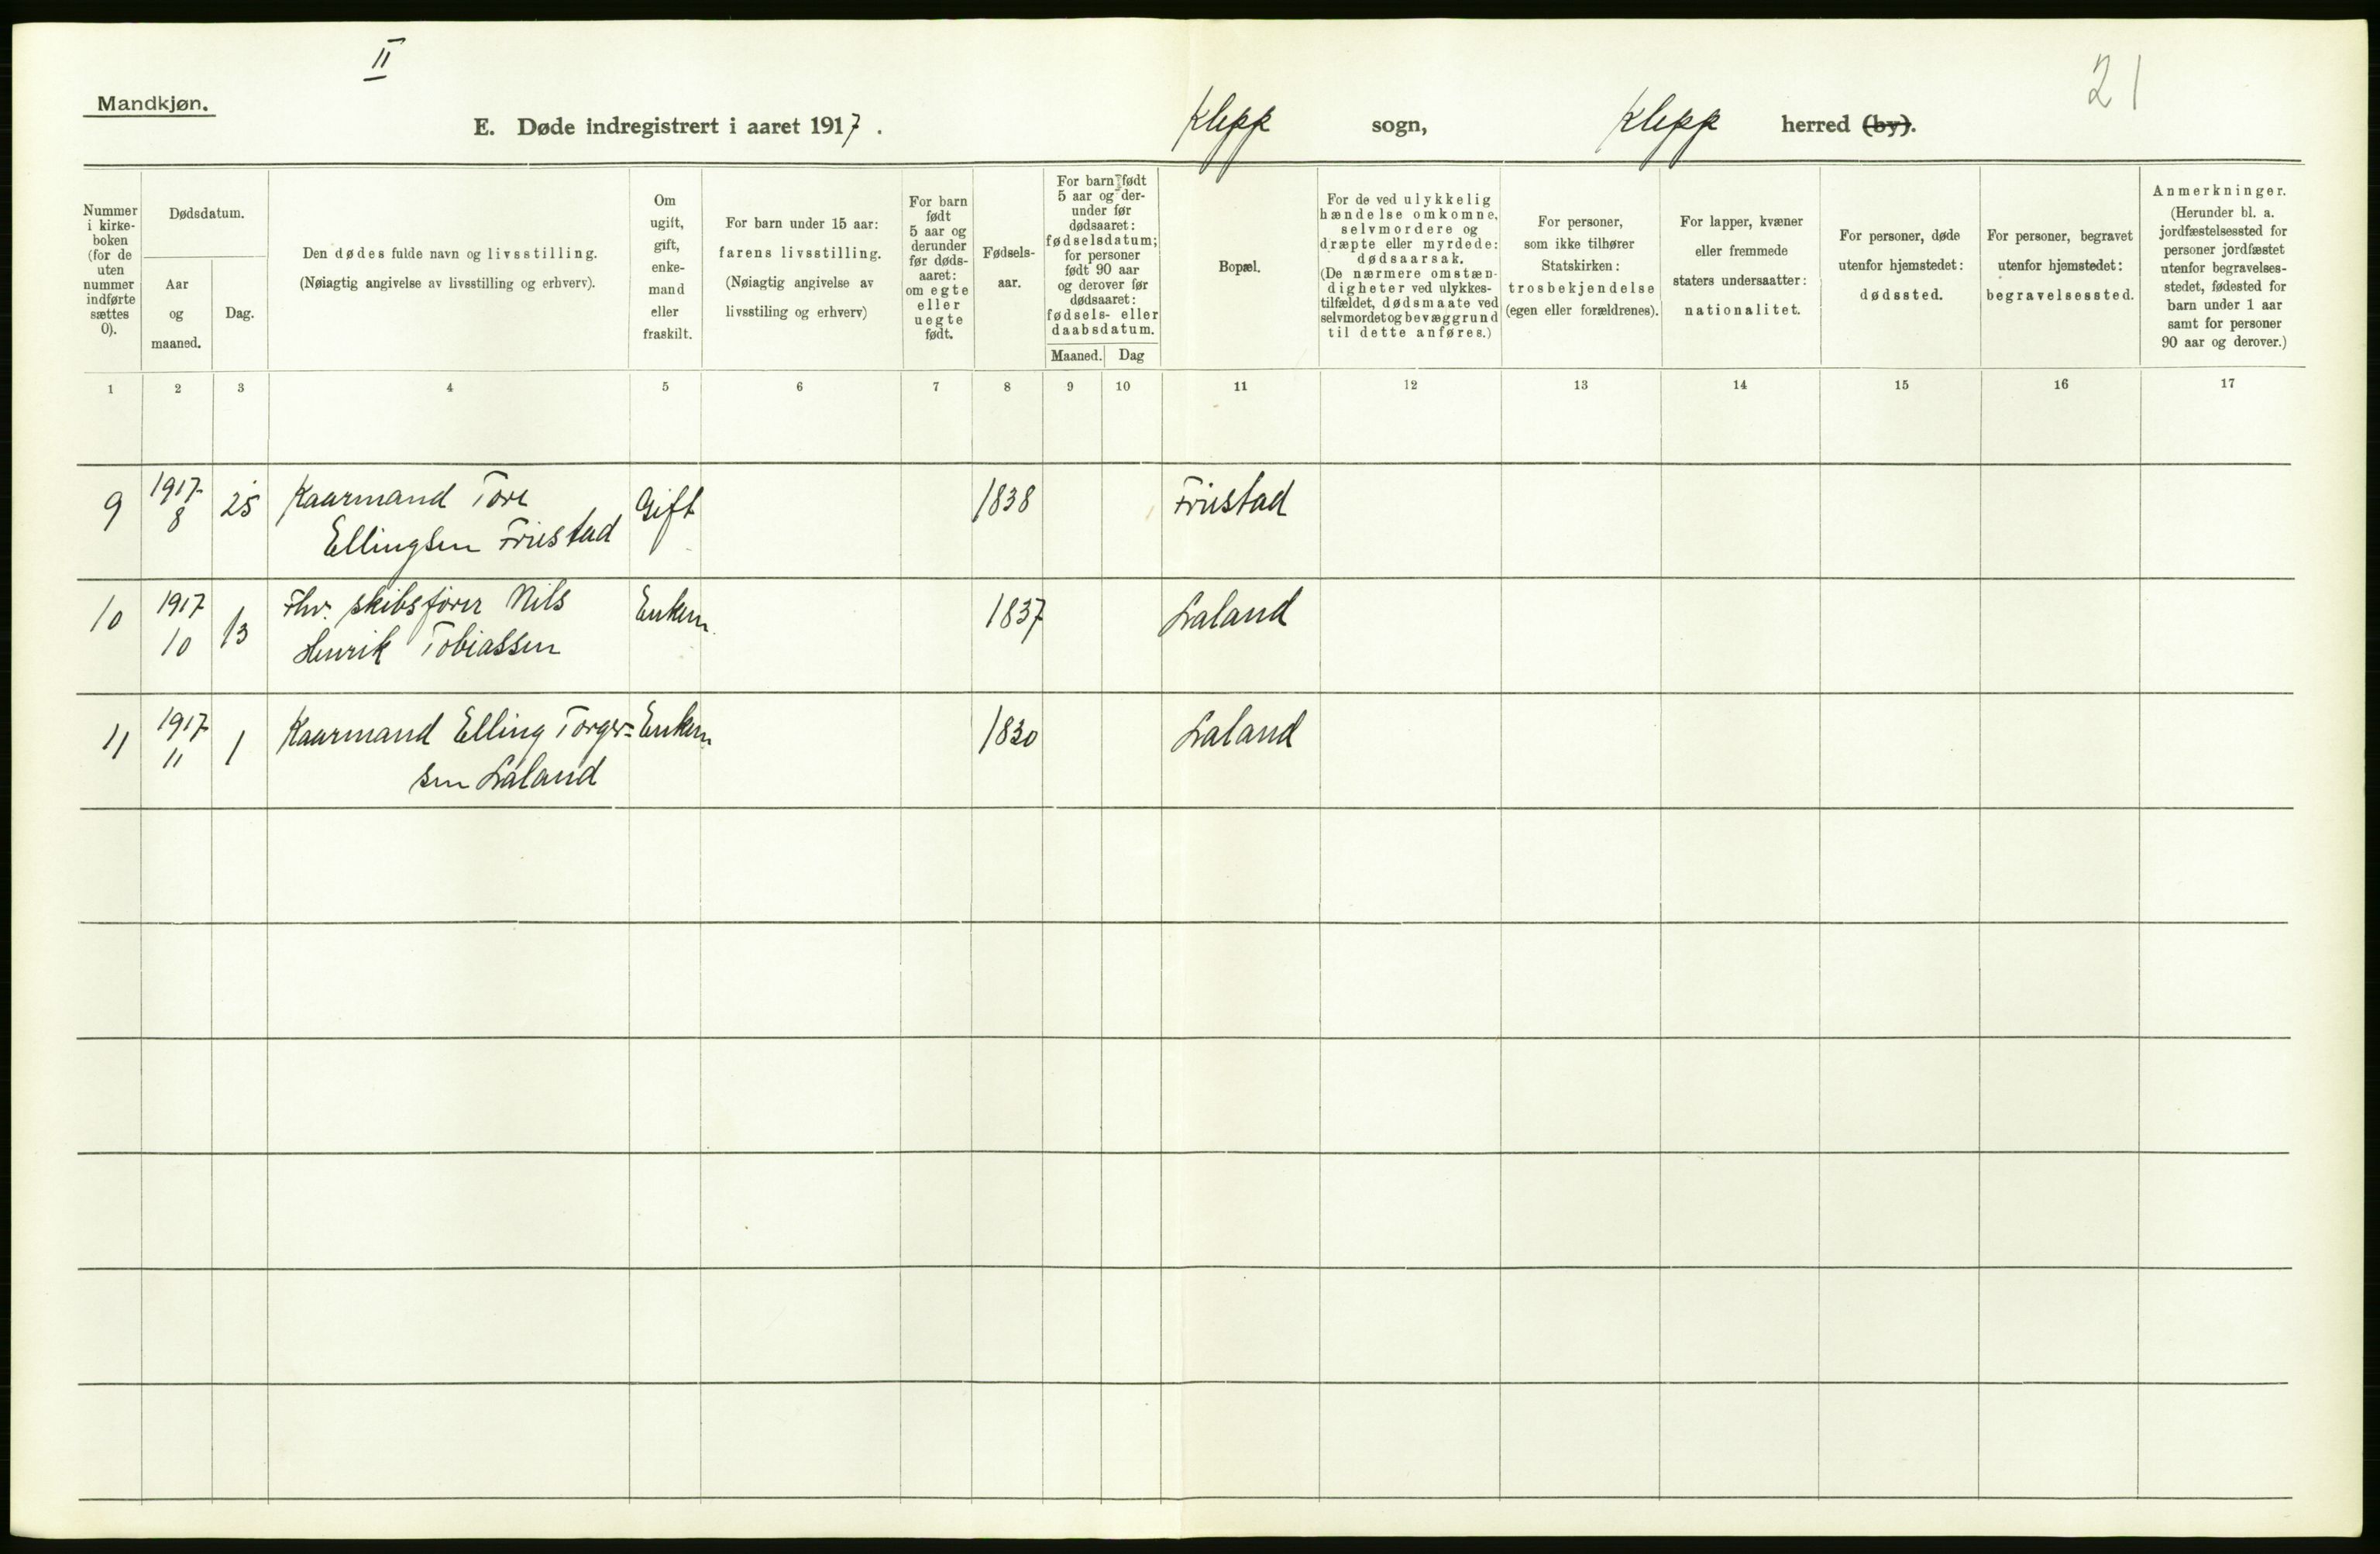 II
21
Mandkjøn.
E. Døde indregistrert i aaret 1917.
Klepp sogn,
Klepp herred (by).
Nummer
i kirke-
boken
(for de
uten
nummer
indførte
sættes
0).
Dødsdatum.
Aar
og
maaned.
Dag.
Den dødes fulde navn og livsstilling.
(Nøiagtig angivelse av livsstilling og erhverv).
Om
ugift,
gift,
enke-
mand
eller
fraskilt.
For barn under 15 aar:
farens livsstilling.
(Nøiagtig angivelse av
livsstiling og erhverv)
For barn
født
5 aar og
derunder
før døds-
aaret:
om egte
eller
uegte
født.
Fødsels-
aar.
For barn født
5 aar og der-
under før
dødsaaret:
fødselsdatum;
for personer
født 90 aar
og derover før
dødsaaret:
fødsels- eller
daabsdatum.
Maaned. Dag
Bopæl.
For de ved ulykkelig
hændelse omkomne,
selvmordere og
dræpte eller myrdede:
dødsaarsak.
(De nærmere omstæn-
digheter ved ulykkes-
tilfældet, dødsmaate ved
selvmordet og bevæggrund
til dette anføres.)
For personer,
som ikke tilhører
Statskirken:
trosbekjendelse
(egen eller forældrenes).
For lapper, kvæner
eller fremmede
staters undersaatter:
nationalitet.
For personer, døde
utenfor hjemstedet:
dødssted.
For personer, begravet
utenfor hjemstedet:
begravelsessted.
Anmerkninger.
(Herunder bl. a.
jordfæstelsessted for
personer jordfæstet
utenfor begravelses-
stedet, fødested for
barn under 1 aar
samt for personer
90 aar og derover.)
1 2 3 4 5 6 7 8 9 10 11 12 13 14 15 16 17
9 1917 25 Kaarmand Tore Gift 1838 Friestad
8 Ellingsen Friestad
10 1917 13 Fhv. skibsfører Nils Enkem. 1837 Laland
10 Henrik Tobiassen
11 1917 1 Kaarmand Elling Torger= Enkem. 1830 Laland
11 sen Laland